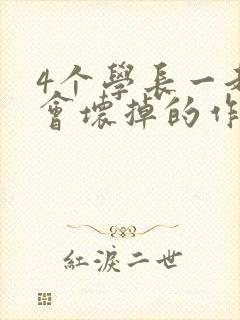 4个學長一
會壞掉的作
紅淚二世